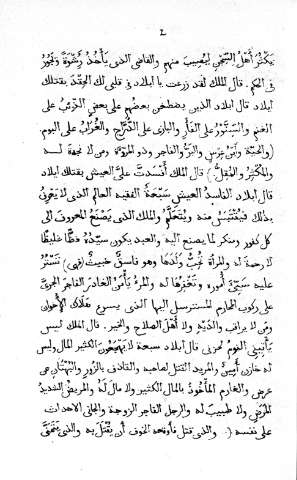 يكثر أهل السجن ليصيب منهم والقاضى الذى يأخذ رشوة ويجور
فى الحكم. قال الملك لقد زرعت يا ايلاد فى قلبى لك الحقد بقتلك
ايلاد قال ايلاد الذين يضطغن بعضهم على بعض الذئب على
الغنم والسنور على الفأر والبازى على الدراج والغراب على البوم.
والحية وابن عرس والبر والفاجر وذو المروة ومن لا له
والمكثر والمقل قال الملك أفسدت على العيش بقتلك ايلاد
قال ايلاد الفاسد العيش سبعة الفقيه العالم الذى لا يعرف
بذلك فيقتبس منه ويتعلم والملك الذى يصنع المعروف الى
كل كفور ومنكر لما يصنع اليه والعبد يكون سيده فظا غليظا
لا رحمة له والمرأة تحب ولدها وهو فاسق خبيث تستر
عليه سىء أموره والمرء يأمن الغادر الفاجر الجرىء
على ركوب المحارم المسترسل اليها الذى يسرع هلاك الاخوان
ومن لا يراقب ولا أهل الصلاح والخير. قال الملك ليس
يأتينى النوم لحزنى قال ايلاد سبعة لا يهجعون الكثير المال وليس
له خازن أمين والمريد القتل لصاحبه والقاذف بالزور والبهتان
عرض والغارم المأخوذ بالمال الكثير ولا مال له والمريض الشديد
المرض ولا طبيب له والرجل الفاجر الزوجة والجانى الاحداث
على نفسه والذى قتل الخوف أن يقتل به والذى يتمنى